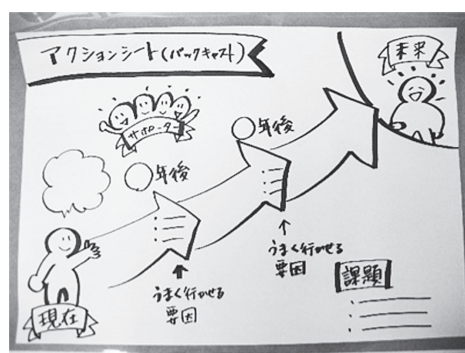 アクションシート(バックキャスト)
未来
サポーター
○年後
○年後
うまく行かせる
要因
うまく行かせる
要因
現在
課題